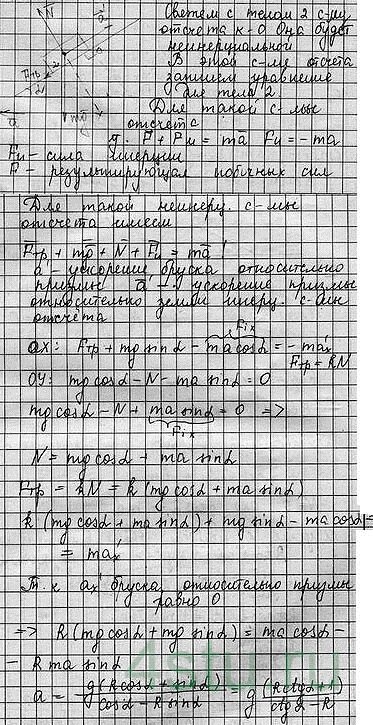 Свяжем с телом 2 с-му
отсчета к-0 Она будет
неинерциальной
В этой с-ме отсчета
запишем уравнение
для тела 2
Для такой с-мы
отсчета
F + Fи = ma Fи = -ma
Fи - сила инерции
F - результирующая побочных сил
N
Fтр
mg
a
Для такой неинерц. с-мы
отсчета имеем
Fтр + mg + N + Fи = ma'
a' - ускорение бруска относительно
призмы a - ускорение призмы
относительно земли инерц. с-мы
отсчета
Fix
OX: Fтр + mg sin α - ma cos α = - ma'x
Fтр = kN
OY: mg cos α - N - ma sin α = 0
mg cos α - N + ma sin α = 0 =>
Fix
N = mg cos α + ma sin α
Fтр = kN = k (mg cos α + ma sin α)
k (mg cos α + ma sin α) + mg sin α - ma cos α =
= ma'x
Т. к a'x бруска относительно призмы
равно 0
=> k (mg cos α + mg sin α) = ma cos α -
- k ma sin α
a = g(k cos α + sin α) / cos α - k sin α = g (k ctg α + 1) / ctg α - k
4stu.ru